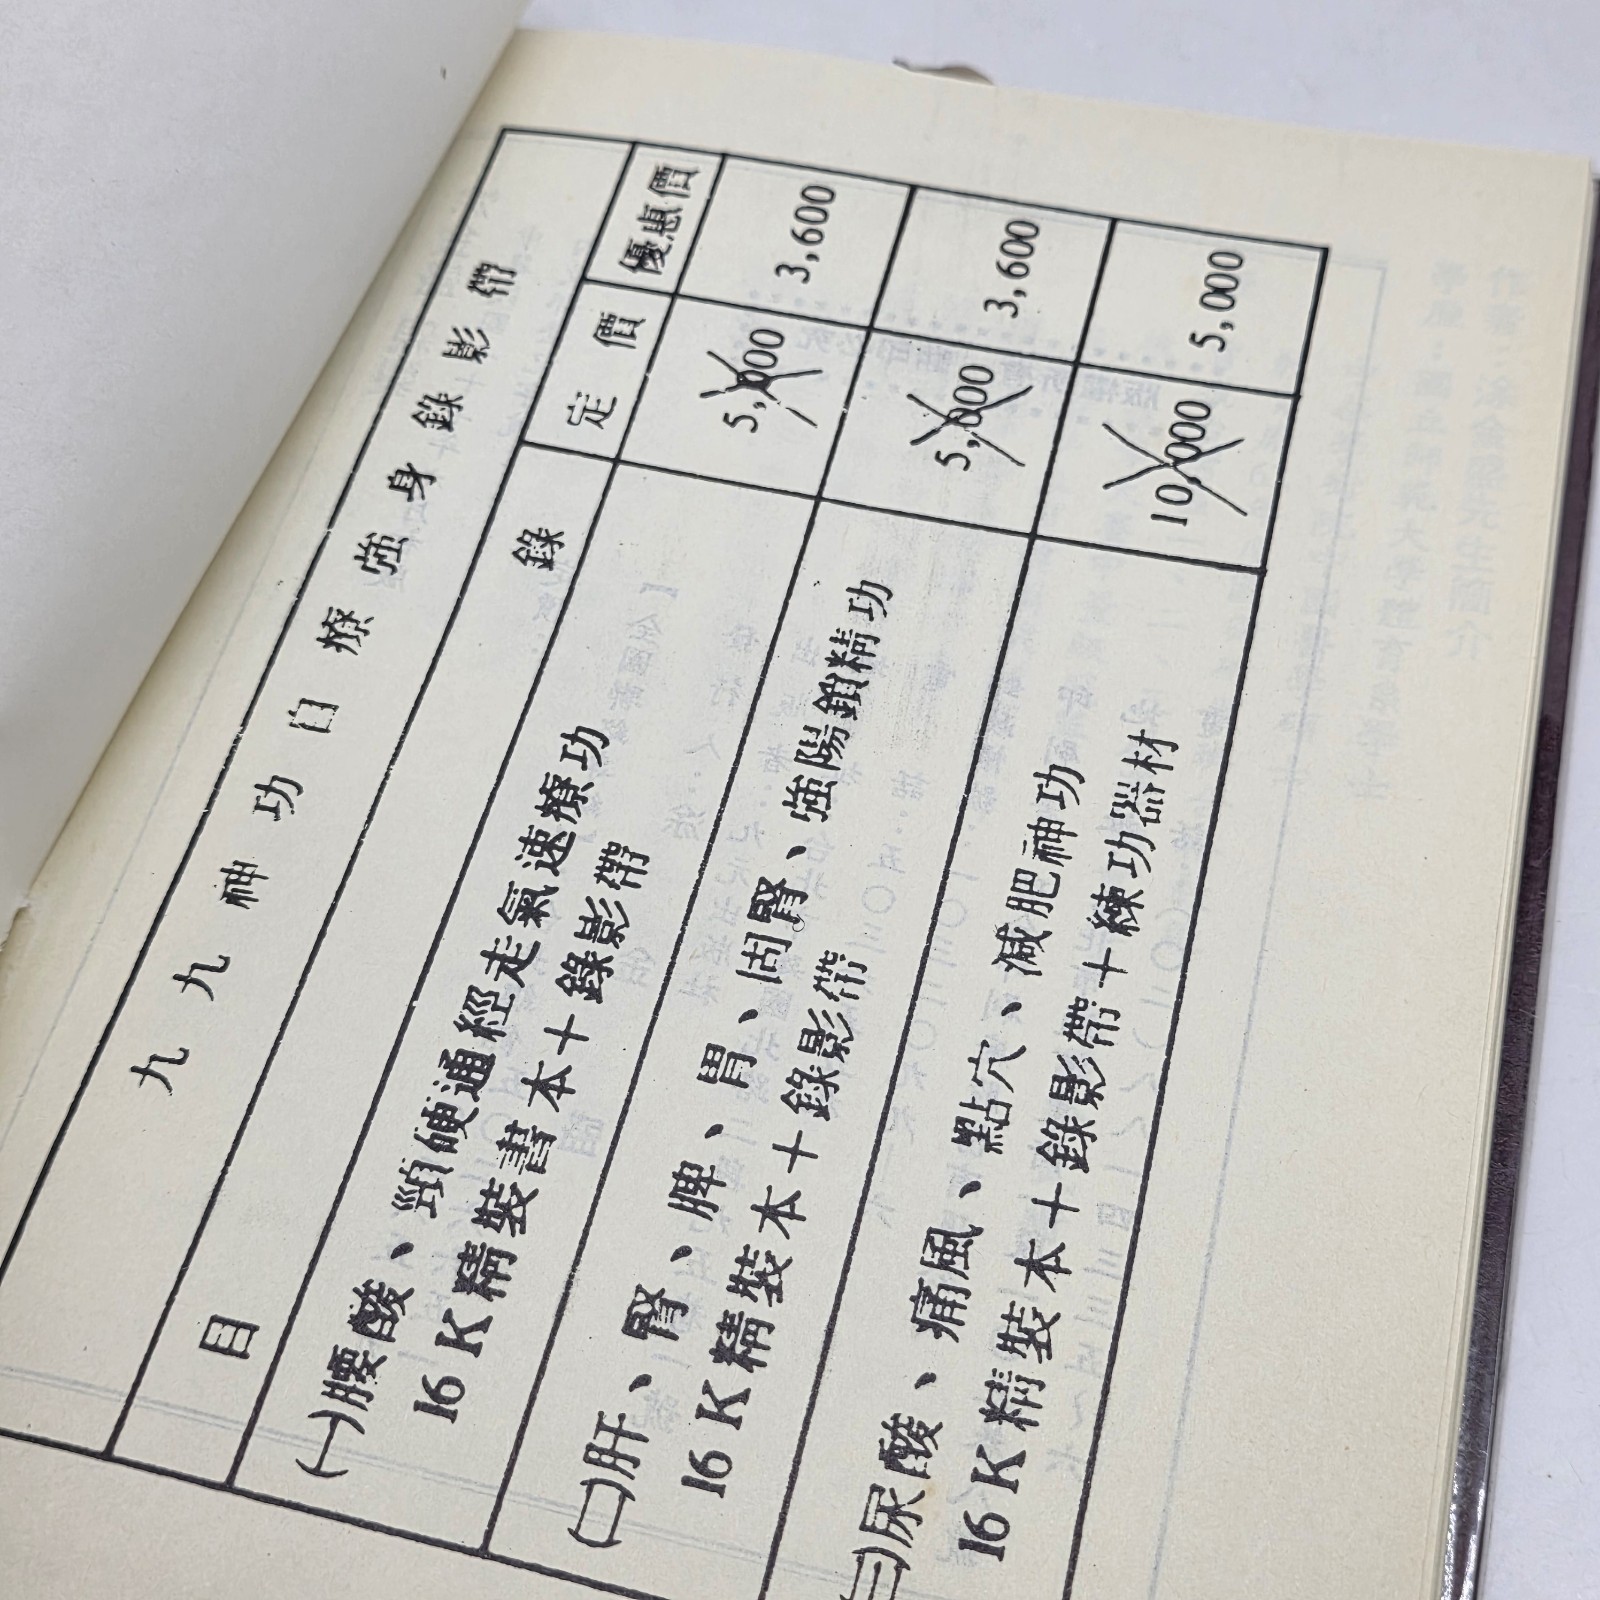 九九神功自療強身錄影帶
目錄 定價 優惠價
(一)腰酸、頸硬通經走氣速療功
16K精裝書本＋錄影帶 5,000 3,600
(二)肝、腎、脾、胃、固腎、強陽鎖精功
16K精裝本＋錄影帶 5,000 3,600
(三)尿酸、痛風、點穴、減肥神功
16K精裝本＋錄影帶＋練功器材 10,000 5,000